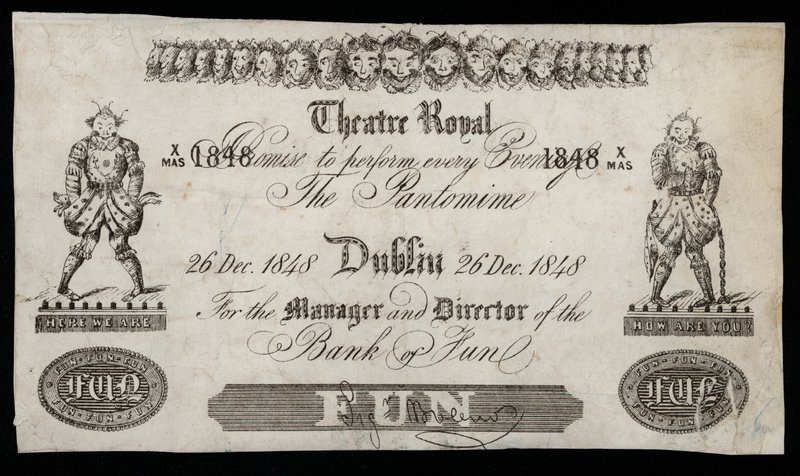 Theatre Royal
X MAS 1848 Promise to perform every Evening 1848 X MAS
The Pantomime
26 Dec. 1848 Dublin 26 Dec. 1848
For the Manager and Director of the
Bank of Fun
HERE WE ARE
HOW ARE YOU?
FUN · FUN · FUN
FUN
FUN · FUN · FUN
FUN
FUN · FUN · FUN
FUN
FUN · FUN · FUN